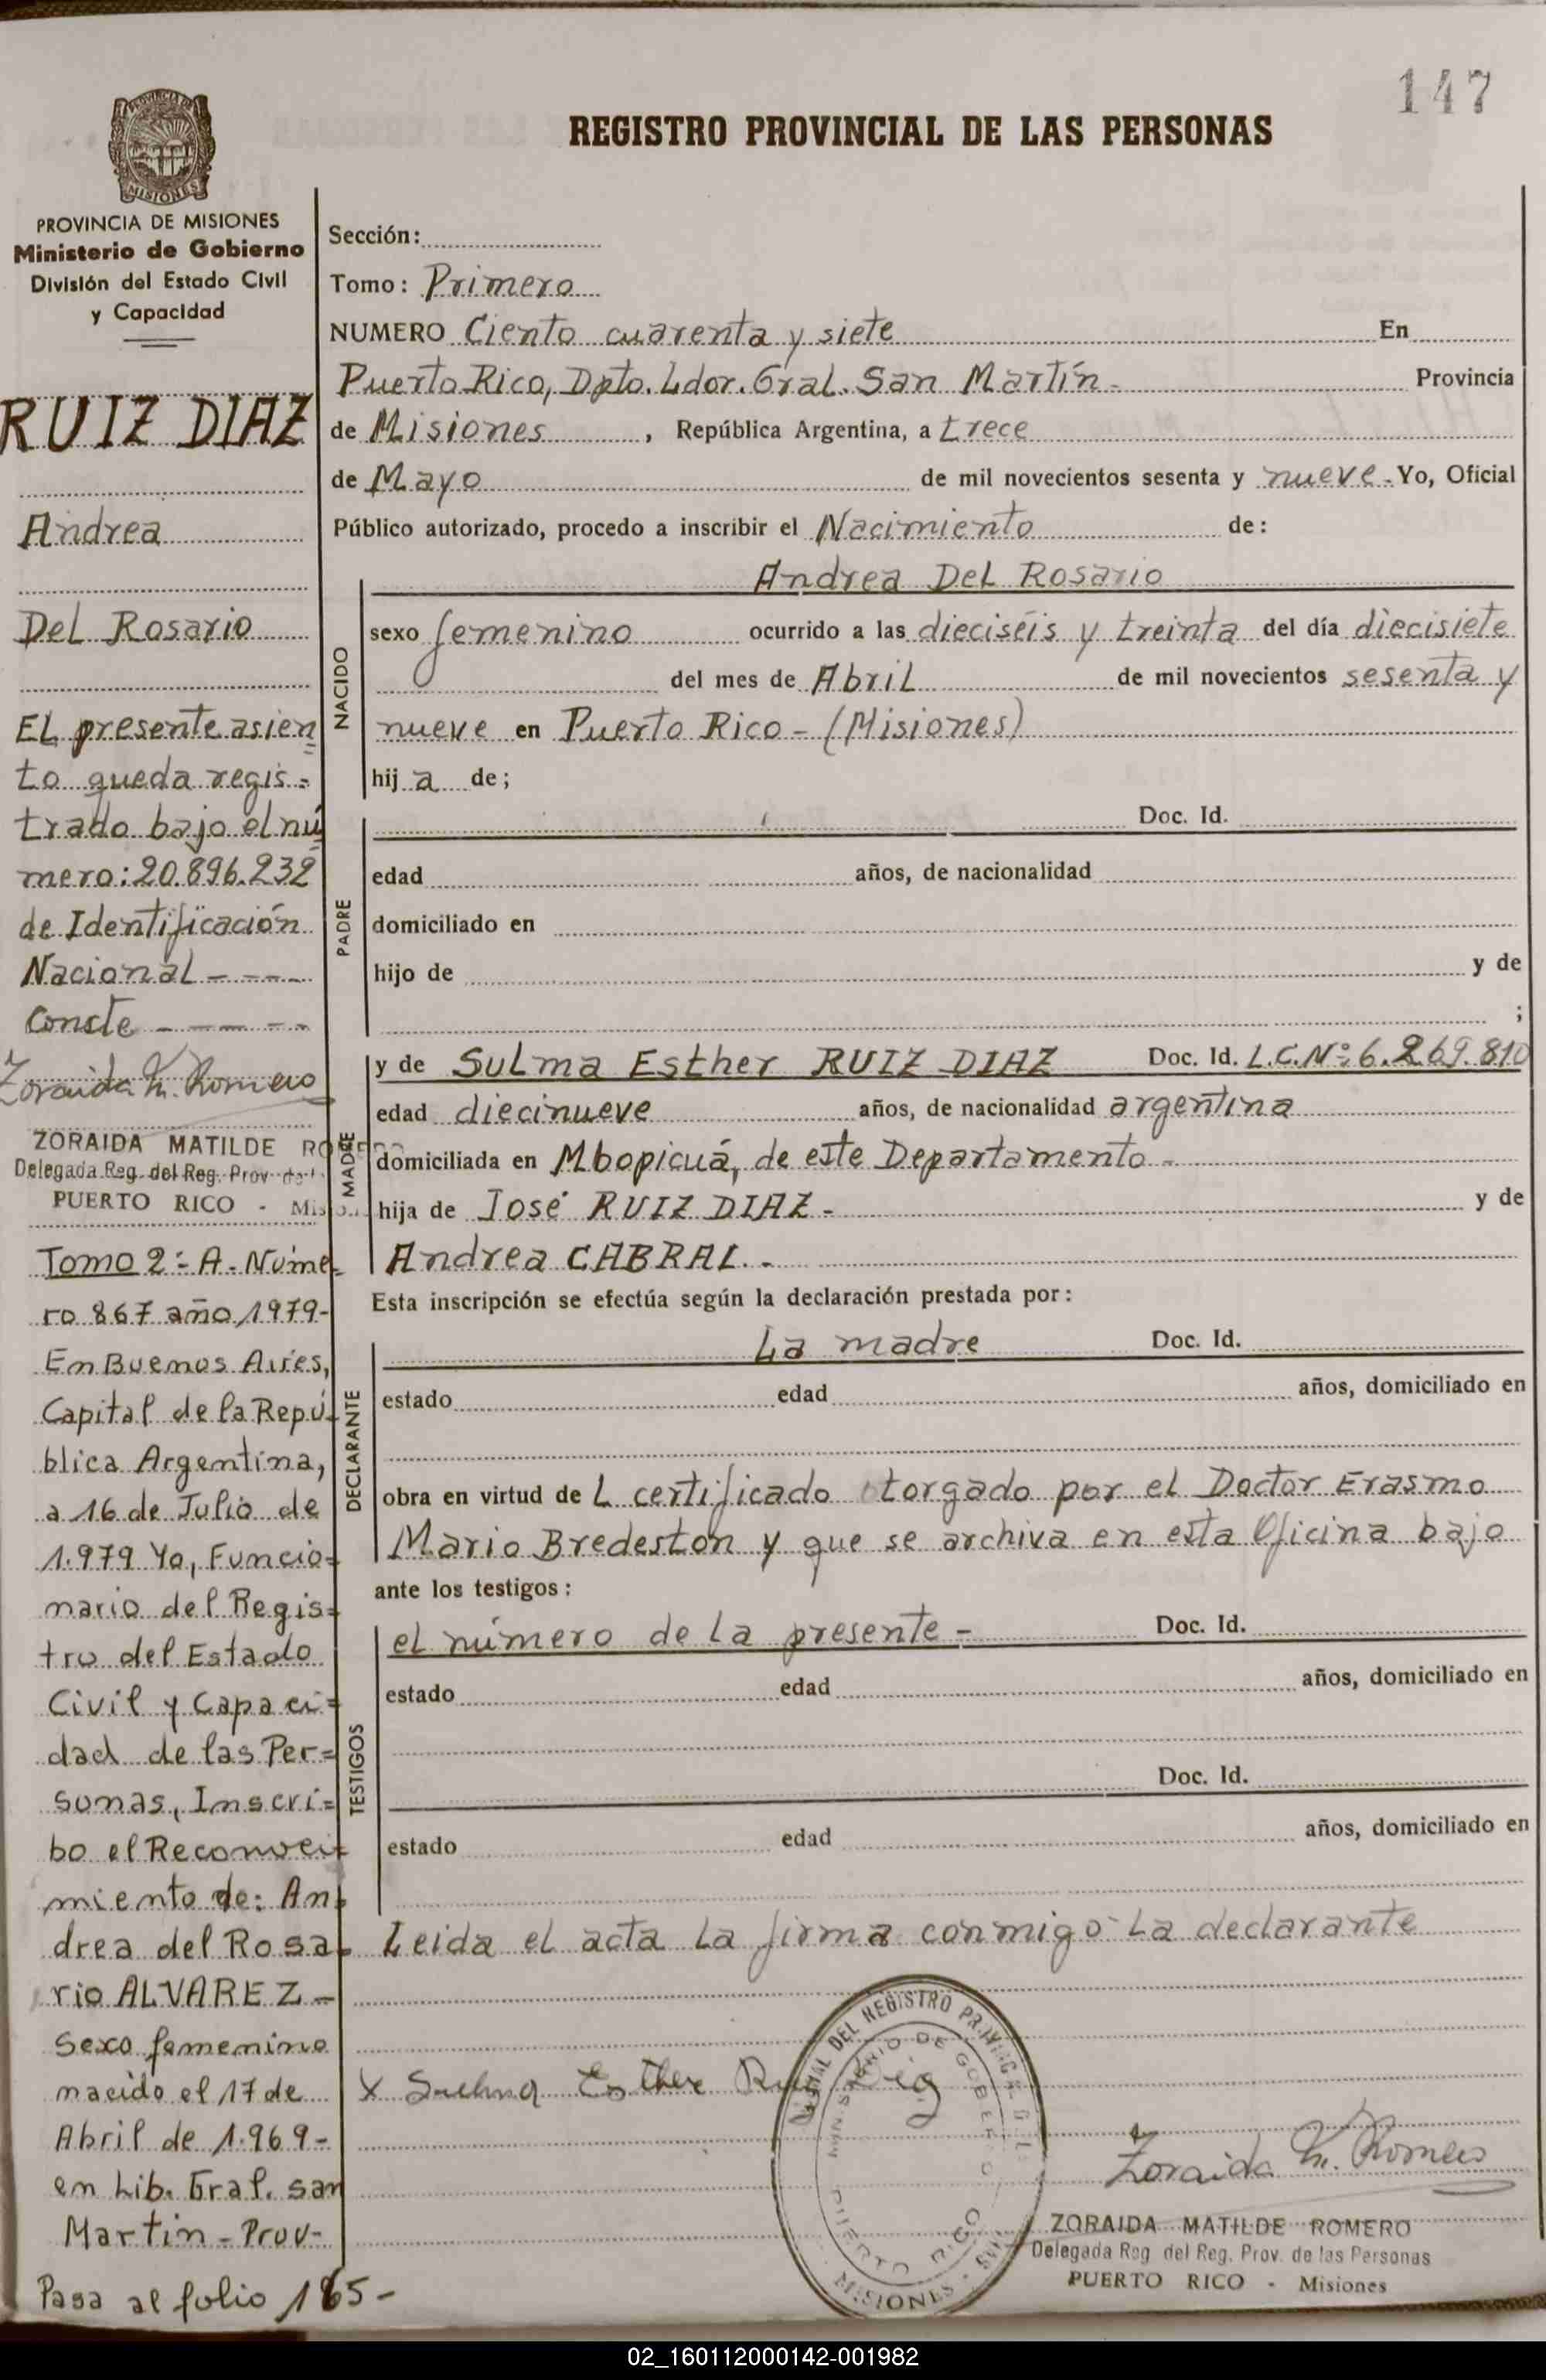 147
REGISTRO PROVINCIAL DE LAS PERSONAS
MISIONES
PROVINCIA DE MISIONES
Ministerio de Gobierno
División del Estado Civil
y Capacidad
RUIZ DIAZ
Andrea
Del Rosario
El presente asien
to queda regis=
trado bajo el nú
mero: 20.896.232
de Identificación
Nacional - - - -
Conste - - - - -
Zoraida M. Romero
ZORAIDA MATILDE ROMERO
Delegada Reg. del Reg. Prov. de l
PUERTO RICO - Misio
Tomo 2º A - Núme=
ro 867 año 1979-
En Buenos Aires,
Capital de la Repú=
blica Argentina,
a 16 de Julio de
1.979 Yo, Funcio=
nario del Regis=
tro del Estado
Civil y Capaci=
dad de las Per=
sonas, Inscri=
bo el Reconoci=
miento de: An=
drea del Rosa=
rio ALVAREZ -
Sexo femenino
nacido el 17 de
Abril de 1.969-
en Lib. Gral. san
Martin - Prov-
Pasa al folio 165-
Sección:
Tomo: Primero
NUMERO Ciento cuarenta y siete En
Puerto Rico, Dpto. Ldor. Gral. San Martín- Provincia
de Misiones, República Argentina, a trece
de Mayo de mil novecientos sesenta y nueve. Yo, Oficial
Público autorizado, procedo a inscribir el Nacimiento de:
NACIDO
Andrea Del Rosario
sexo femenino ocurrido a las dieciséis y treinta del día diecisiete
del mes de Abril de mil novecientos sesenta y
nueve en Puerto Rico - (Misiones)
hij a de;
PADRE
Doc. Id.
edad años, de nacionalidad
domiciliado en
hijo de y de
;
MADRE
y de Sulma Esther RUIZ DIAZ Doc. Id. L.C.Nº: 6.269.810
edad diecinueve años, de nacionalidad argentina
domiciliada en Mbopicuá, de este Departamento -
hija de José RUIZ DIAZ - y de
Andrea CABRAL. -
Esta inscripción se efectúa según la declaración prestada por:
DECLARANTE
La madre Doc. Id.
estado edad años, domiciliado en
obra en virtud de L certificado otorgado por el Doctor Erasmo
Mario Bredeston y que se archiva en esta Oficina bajo
ante los testigos:
TESTIGOS
el número de la presente - Doc. Id.
estado edad años, domiciliado en
Doc. Id.
estado edad años, domiciliado en
Leida el acta la firma conmigo La declarante
X Sulma Esther Ruiz Diaz
DEL REGISTRO PROVINCIAL
MINISTERIO DE GOBIERNO
PUERTO RICO
MISIONES
Zoraida M. Romero
ZORAIDA MATILDE ROMERO
Delegada Reg del Reg. Prov. de las Personas
PUERTO RICO - Misiones
02_160112000142-001982